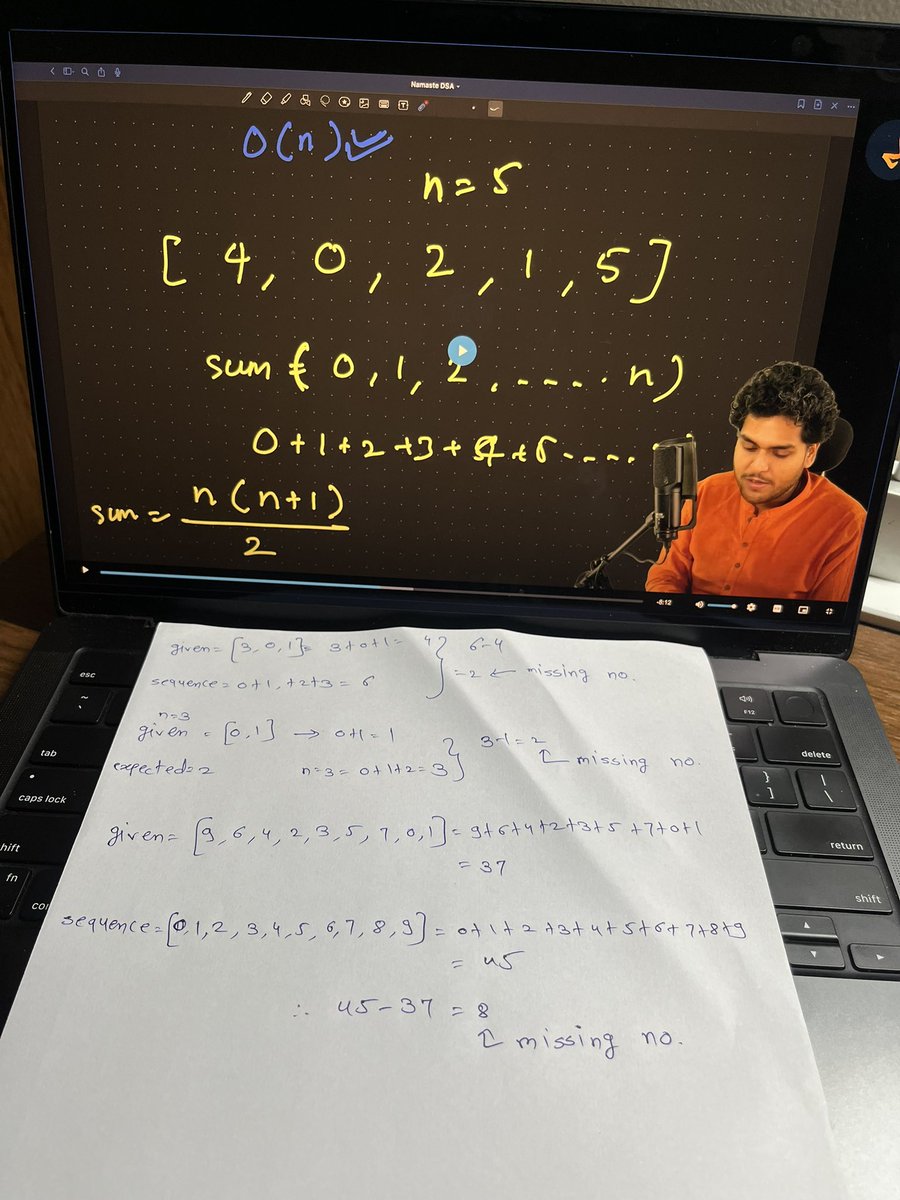 Namaste DSA
O(n)
n = 5
[ 4, 0, 2, 1, 5 ]
sum ( 0, 1, 2, ----. n)
0+1+2+3+4+5----.
sum = n(n+1)
2
-8:12
given = [3, 0, 1] = 3+0+1 = 4 } 6-4
sequence = 0+1, +2+3 = 6 = 2 ← missing no.
n=3
given = [0,1] → 0+1 = 1 } 3-1 = 2
expected = 2 n=3 = 0+1+2 = 3 missing no.
given = [9, 6, 4, 2, 3, 5, 7, 0, 1] = 9+6+4+2+3+5+7+0+1
= 37
sequence = [0, 1, 2, 3, 4, 5, 6, 7, 8, 9] = 0+1+2+3+4+5+6+7+8+9
= 45
∴ 45-37 = 8
missing no.
esc
~
tab
caps lock
hift
fn
F12
delete
}
]
|
\
return
shift